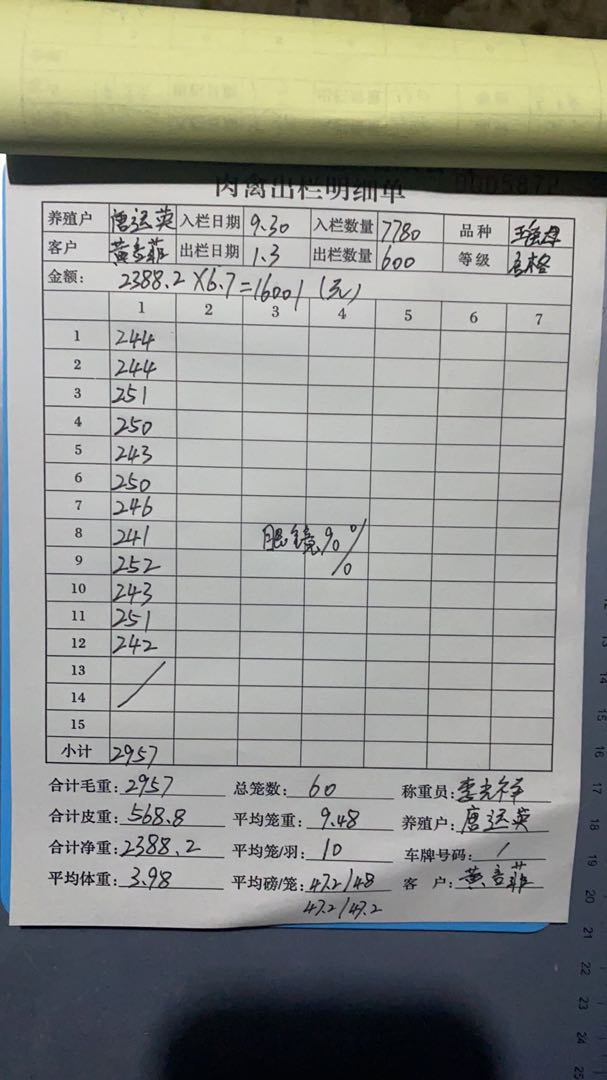 肉禽出栏明细单 0005872
养殖户 唐运英 入栏日期 9.30 入栏数量 7780 品种
客户 黄彦菲 出栏日期 1.3 出栏数量 600 等级 合格
金额: 2388.2×6.7=16001(元)
1 2 3 4 5 6 7
1 244
2 244
3 251
4 250
5 243
6 250
7 246
8 241 眼镜%%
9 252
10 243
11 251
12 242
13
14
15
小计 2957
合计毛重: 2957 总笼数: 60 称重员: 李光祥
合计皮重: 568.8 平均笼重: 9.48 养殖户: 唐运英
合计净重: 2388.2 平均笼/羽: 10 车牌号码: /
平均体重: 3.98 平均磅/笼: 47.2/48 客户: 黄彦菲
47.2/47.2